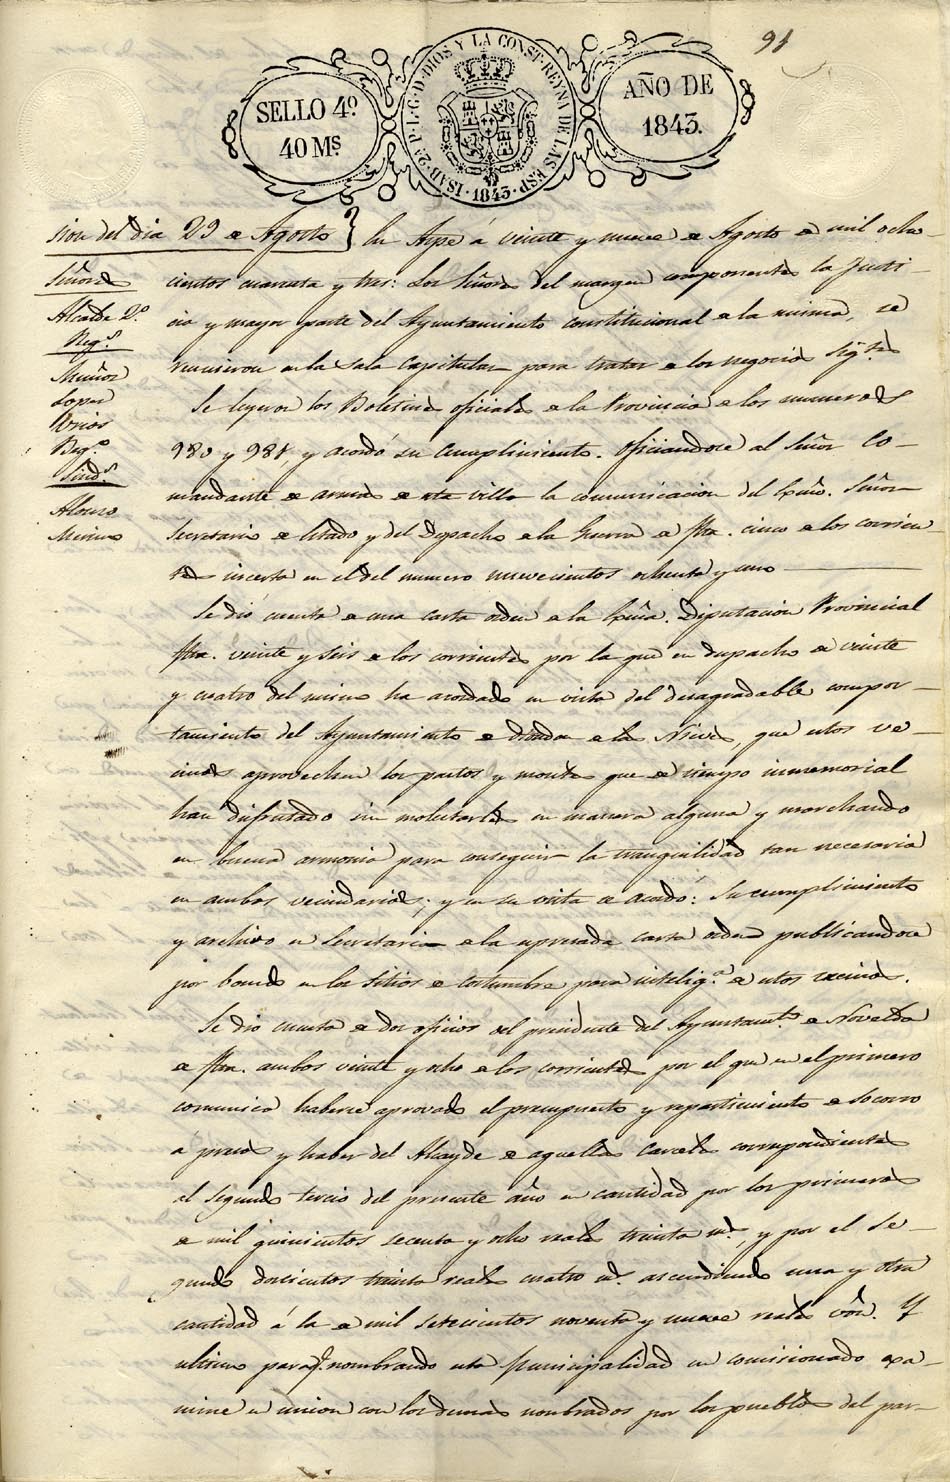 91
SELLO 4º
40 Mˢ
ISAB. 2ª P. L. G. D. DIOS Y LA CONST. REYNA DE LAS ESP. 1843.
AÑO DE
1843.
sion del dia 29 de Agosto
Señores
Alcalde 2º
Regˢ
Muñoz
Lopez
Rios
Sindˢ
Alonso
Merino
En Aspe á veinte y nueve de Agosto de mil ocho-
cientos cuarenta y tres: Los Señores del margen componentes la Justi-
cia y mayor parte del Ayuntamiento constitucional de la misma, se
reunieron en la sala Capitular para tratar de los negocios sigᵗᵉˢ
Se leyeron los Boletines oficiales de la Provincia de los numeros
980 y 981, y acordó su cumplimiento. Oficiandose al Señor Co-
mandante de armas de esta villa la comunicacion del Exmo. Señor
Secretario de Estado y del Despacho de la Guerra de fha. cinco de los corrien-
tes incerta en el del numero nuevecientos ochenta y uno
Se dió cuenta de una carta orden de la Exma. Diputacion Provincial
fha. veinte y seis de los corrientes por la que en despacho de veinte
y cuatro del mismo ha acordado en vista del desagradable compor-
tamiento del Ayuntamiento de Hondon de las Nieves, que estos ve-
cinos aprovechen los pastos y montes que de tiempo inmemorial
han disfrutado sin molestarles en manera alguna y marchando
en buena armonia para conseguir la tranquilidad tan necesaria
en ambos vecindarios; y en su vista se acordó: Su cumplimiento
y archivo en Secretaria de la espresada carta orden publicandose
por bando en los sitios de costumbre para inteligª de estos vecinos.
Se dio cuenta de dos oficios del presidente del Ayuntamᵗᵒ de Novelda
de fha. ambos veinte y ocho de los corrientes por el que en el primero
comunica haberse aprovado el presupuesto y repartimiento de socorro
a presos y haber del Alcayde de aquellas Carceles correspondientes
al segundo tercio del presente año en cantidad por los primeros
de mil quinientos secenta y ocho reales treinta mˢ, y por el se-
gundo doscientos treinta reales cuatro mˢ. ascendiendo una y otra
cantidad á la de mil setecientos noventa y nueve reales von. Y
ultimo para q. nombrando esta Municipalidad un comisionado exa-
mine en union con los demas nombrados por los pueblos del par-